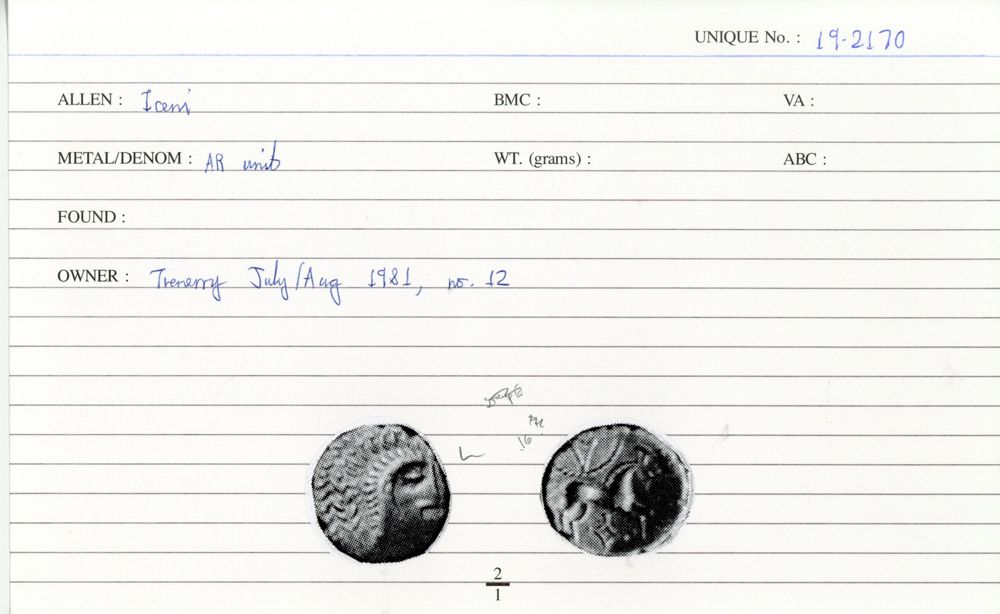 UNIQUE No. : 19-2170
ALLEN : Iceni BMC : VA :
METAL/DENOM : AR unit WT. (grams) : ABC :
FOUND :
OWNER : Trenerry July/Aug 1981, no. 12
L
16
2
1